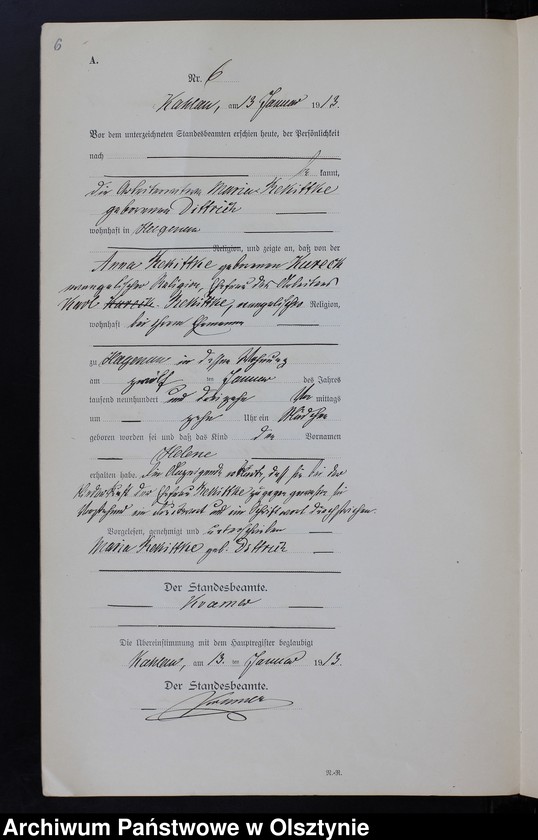 6
A.
Nr. 6
Kahlau, am 13 Januar 1913.
Vor dem unterzeichneten Standesbeamten erschien heute, der Persönlichkeit
nach
be kannt,
die Maria Rekittke
geborene Dittrich
wohnhaft in Hagenau
Religion, und zeigte an, daß von der
Anna Rekittke geborenen Kureck
evangelischer Religion, Ehefrau des Arbeiters
Karl Kureck Rekittke, evangelischer Religion,
wohnhaft bei ihrem Ehemanne
zu Hagenau in dessen Wohnung
am zwölf ten Januar des Jahres
tausend neunhundert und dreizehn Vor mittags
um zehn Uhr ein Mädchen
geboren worden sei und daß das Kind den Vornamen
Helene
erhalten habe. Die Anzeigende erklärte, daß sie bei der
Niederkunft der Ehefrau Rekittke zugegen gewesen sei
Vorstehend ein Druckwort und ein Schriftwort durchstrichen.
Vorgelesen, genehmigt und unterschrieben
Maria Rekittke geb. Dittrich
Der Standesbeamte.
Kramer
Die Übereinstimmung mit dem Hauptregister beglaubigt
Kahlau, am 13. ten Januar 1913.
Der Standesbeamte.
Kramer
N.-R.
Archiwum Państwowe w Olsztynie